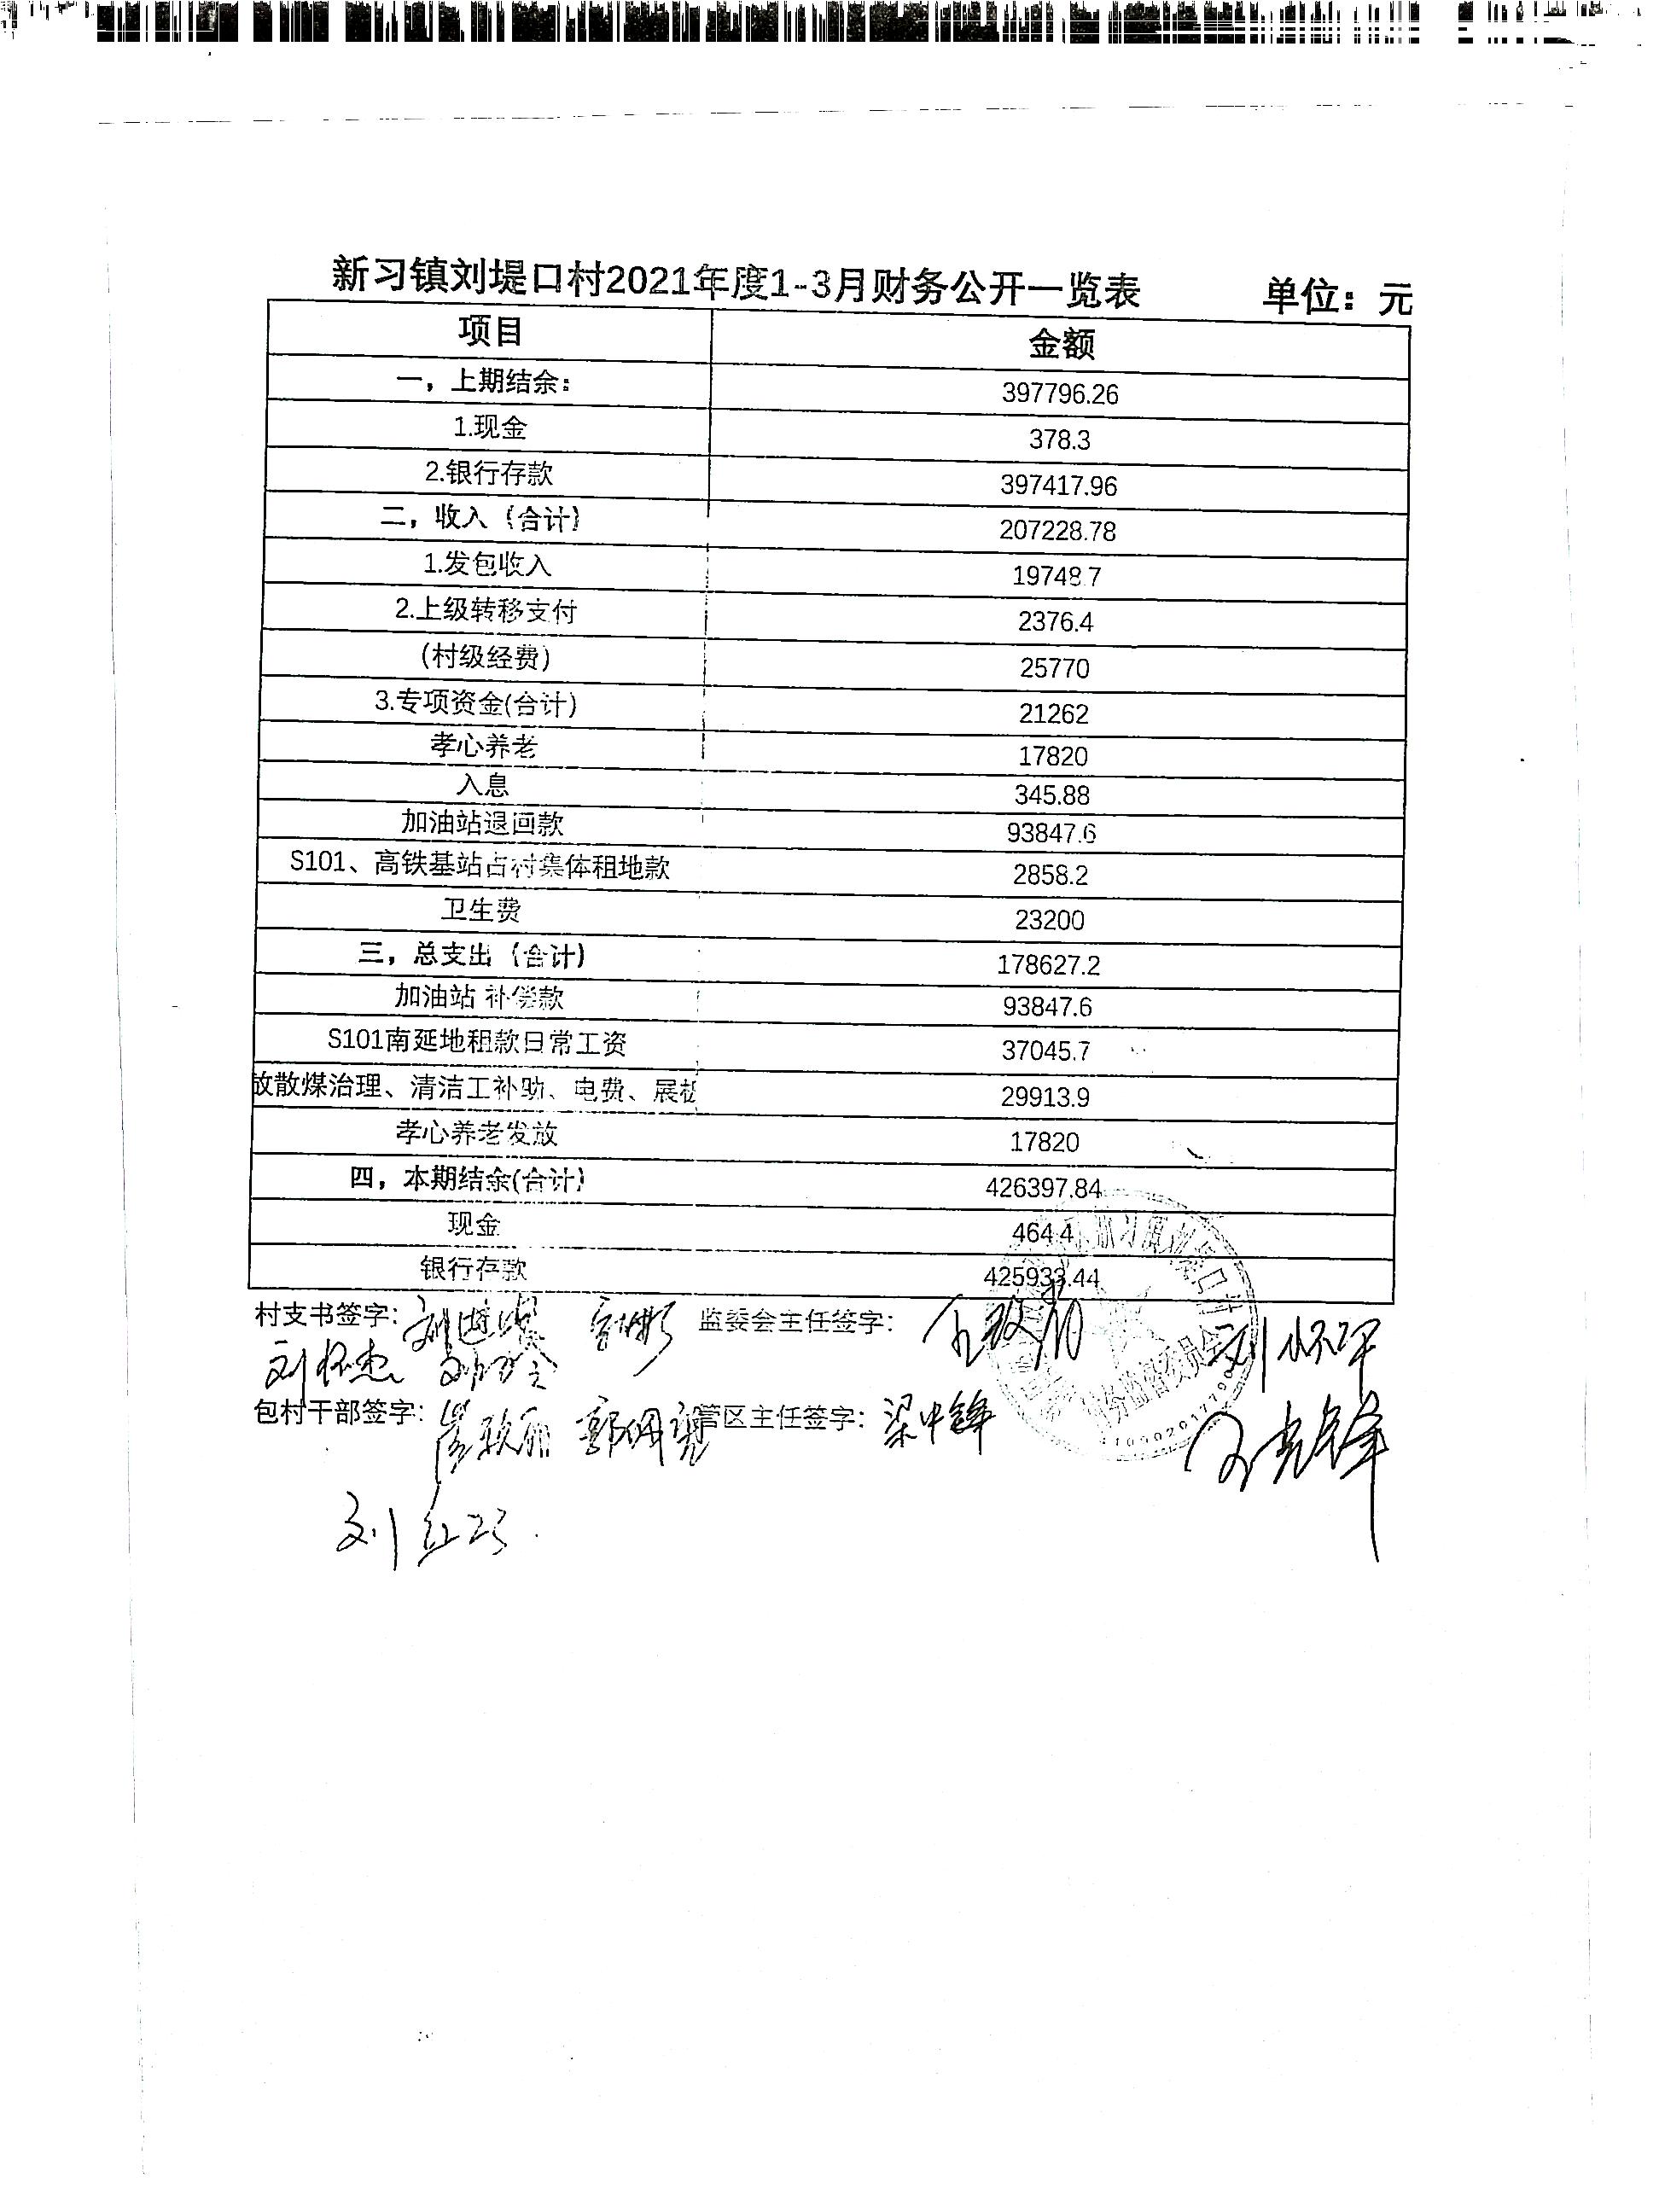 新习镇刘堤口村2021年度1-3月财务公开一览表 单位：元
项目 金额
一，上期结余： 397796.26
1.现金 378.3
2.银行存款 397417.96
二，收入（合计） 207228.78
1.发包收入 19748.7
2.上级转移支付 2376.4
(村级经费) 25770
3.专项资金(合计) 21262
孝心养老 17820
入息 345.88
加油站退回款 93847.6
S101、高铁基站占村集体租地款 2858.2
卫生费 23200
三，总支出（合计） 178627.2
加油站 补偿款 93847.6
S101南延地租款日常工资 37045.7
放散煤治理、清洁工补助、电费、展板 29913.9
孝心养老发放 17820
四，本期结余(合计) 426397.84
现金 464.4
银行存款 425933.44
村支书签字： 监委会主任签字：
包村干部签字： 管区主任签字：梁中锋